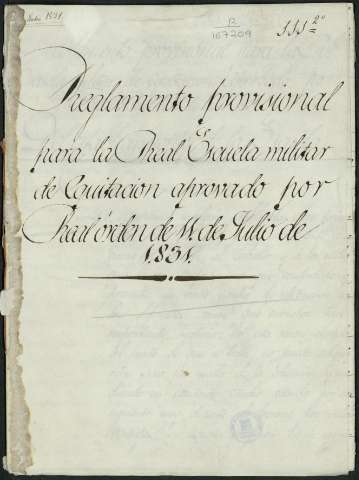 Julio 1831.
12
167209
SSS 2º
Reglamento provisional
para la Real Escuela militar
de Equitacion aprovado por
Real órden de 11. de Julio de
1.831.